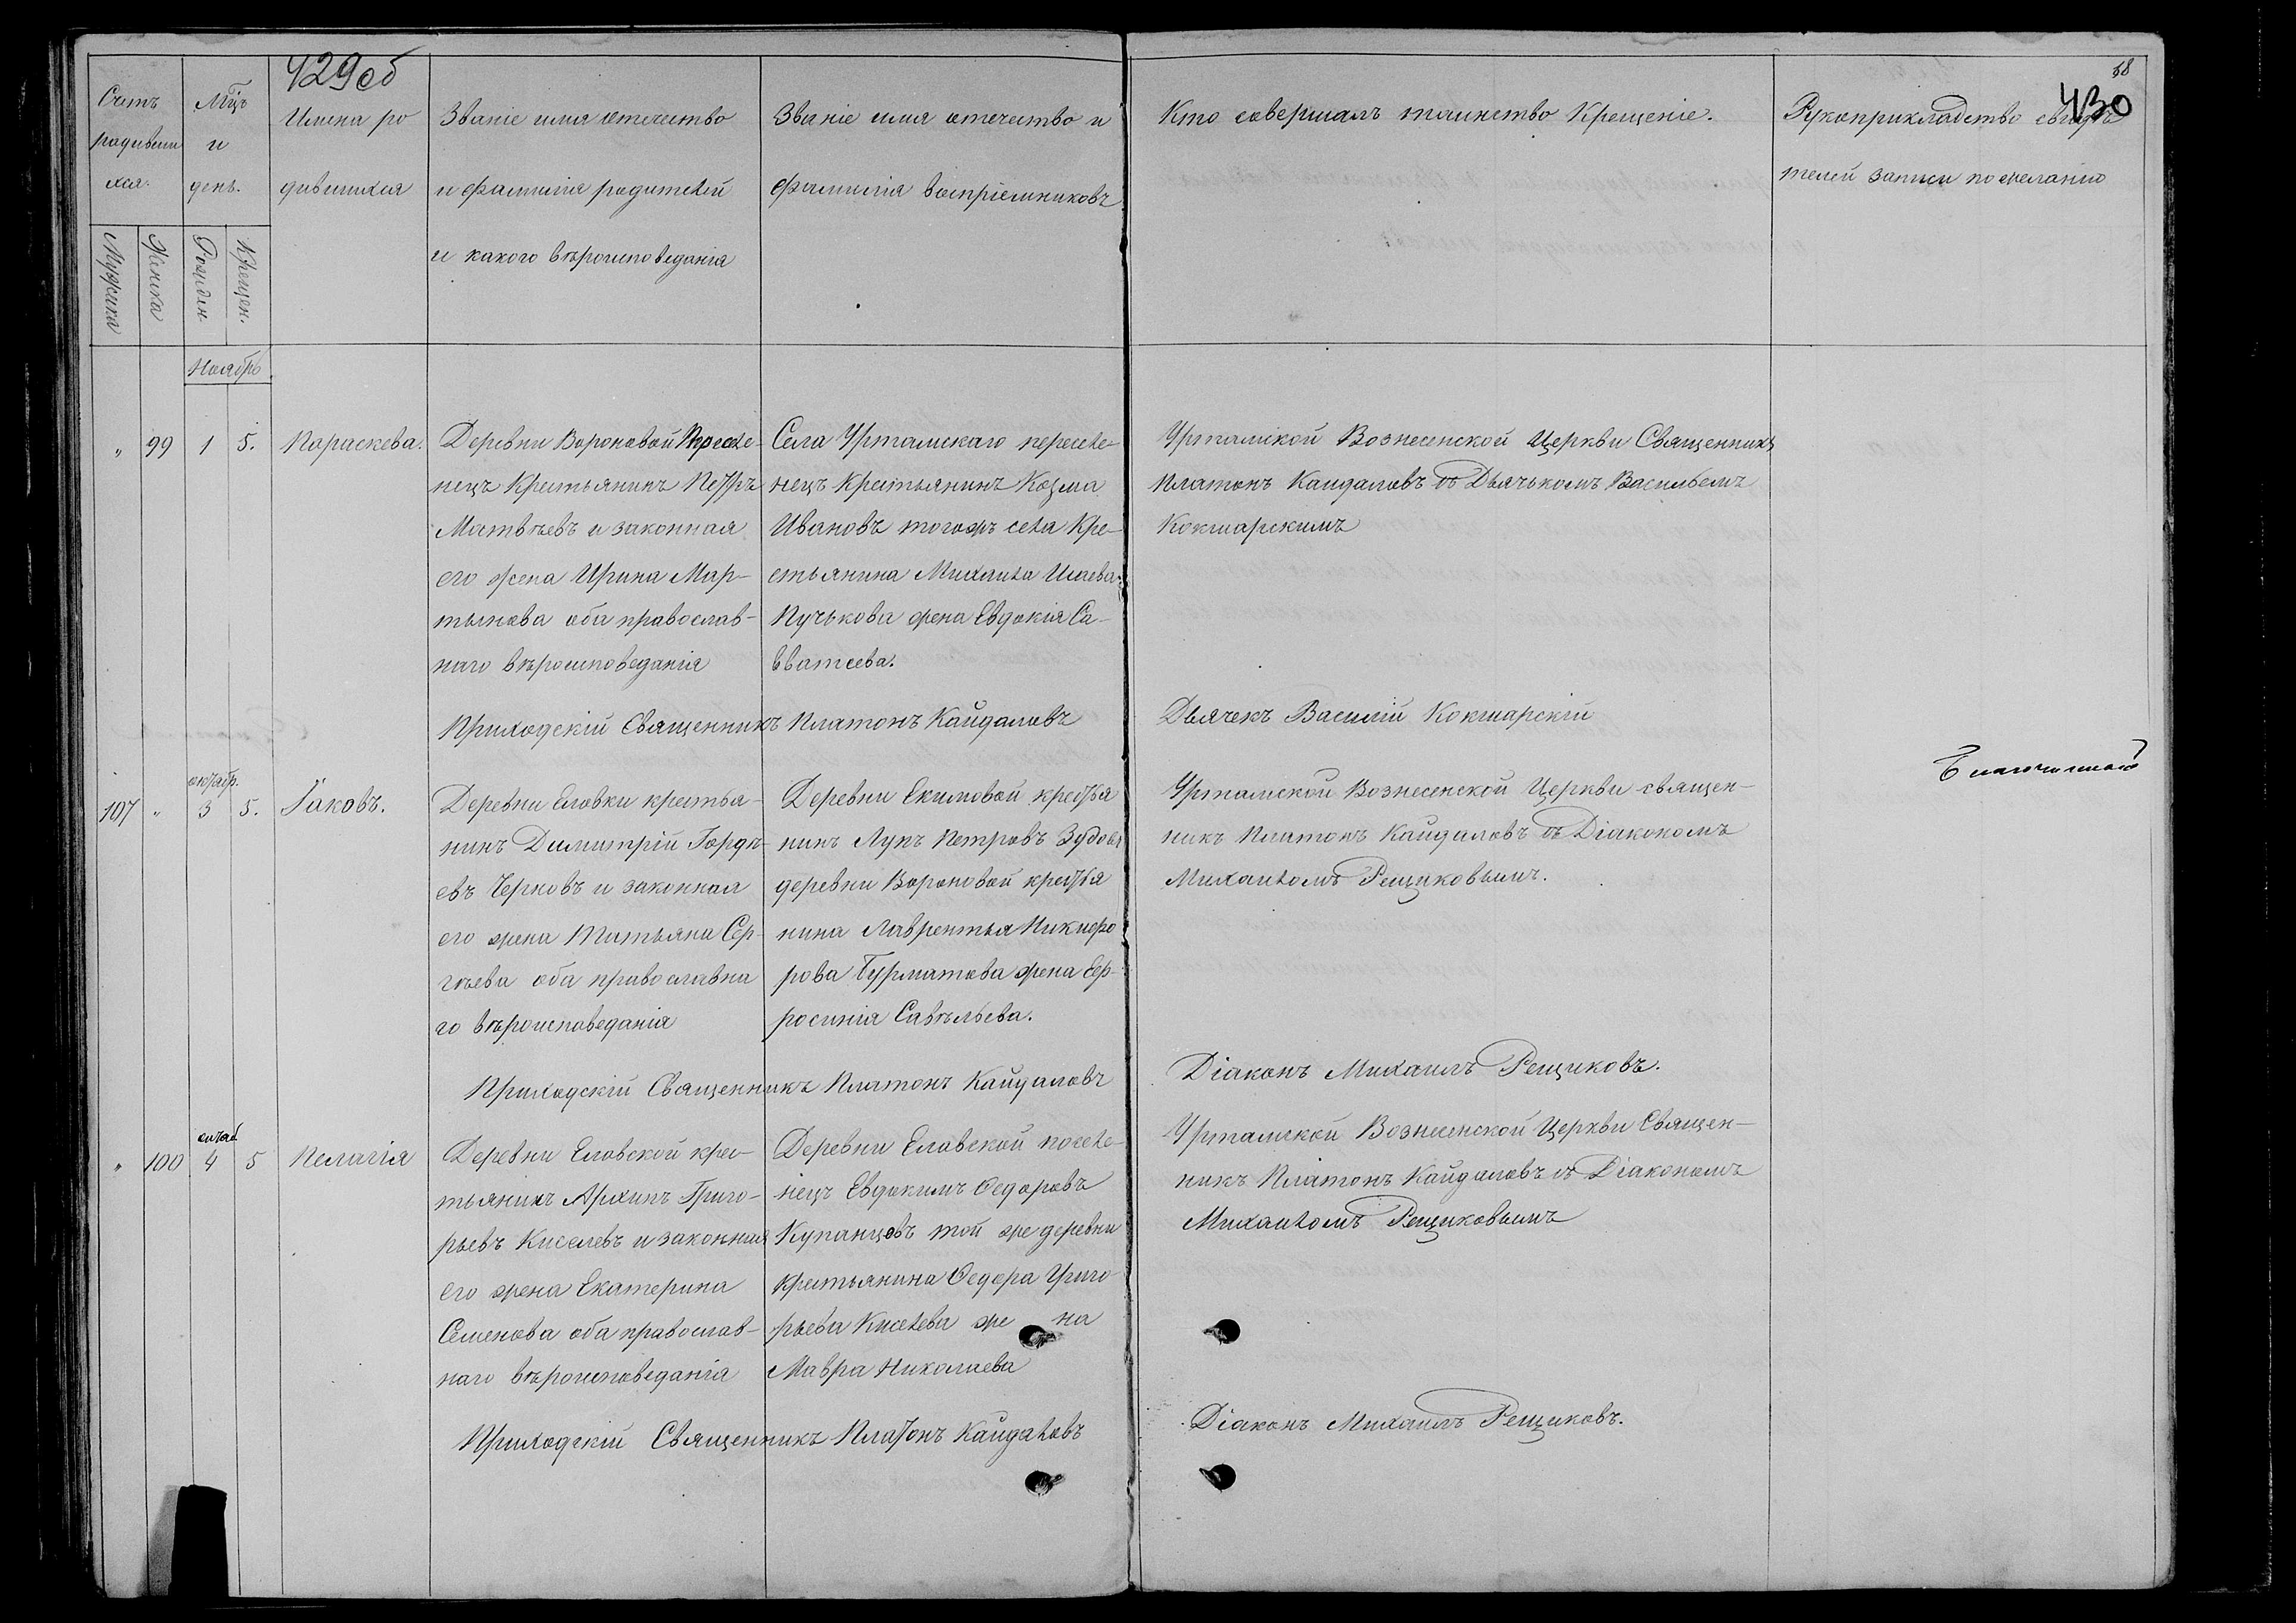 429об
Счетъ
родивши
хся.
Мцъ
и
день.
Имена ро
дившихся
Званіе имя отечество
и фамилія родителей
и какого вѣроисповеданія
Званіе имя отечество и
фамилія воспріемниковъ
Кто совершалъ таинство Крещеніе.
58
430
Рукоприкладство свидѣ
телей записи по желанію
Мужска
Женска
Рожден.
Крещен.
Ноябрь
" 99 1 5. Параскева.
Деревни Вороновой Пересле-
нецъ Крестьянинъ Петръ
Матвѣевъ и законная
его жена Ирина Мар-
тынова оба православ-
наго вѣроисповеданія
Села Уртамскаго переселе-
нецъ Крестьянинъ Козма
Ивановъ тогожъ села Кре-
стьянина Михаила Исаева
Пучькова жена Евдокія Са-
вватеева.
Уртамской Вознесенской Церкви Священникъ
Платонъ Кайдаловъ съ Дьячькомъ Васильемъ
Кокшарскимъ
Приходскій Священникъ Платонъ Кайдаловъ
Дьячекъ Василій Кокшарскій
октябр.
107 " 3 5. Іаковъ.
Деревни Еловки крестья-
нинъ Димитрій Гордѣ-
евъ Черновъ и законная
его жена Татьяна Сер-
гѣева оба православна
го вѣроисповеданія
Деревни Екимовой крестья
нинъ Лука Петровъ Зубовъ
деревни Вороновой крестья
нина Лаврентья Никифо
рова Бурматова жена Еф-
росинія Савельева.
Уртамской Вознесенской Церкви священ-
никъ Платонъ Кайдаловъ съ Діакономъ
Михаиломъ Рещиковымъ.
Приходскій Священникъ Платонъ Кайдаловъ
Діаконъ Михаилъ Рещиковъ.
" 100 4 5 Пелагія
Деревни Еловской крес-
тьянинъ Архипъ Григо-
рьевъ Киселевъ и законная
его жена Екатерина
Семенова оба православ-
наго вѣроисповеданія
Деревни Еловской поселе-
нецъ Евдокимъ Ѳедоровъ
Купанцовъ той же деревни
крестьянина Ѳедора Григо
рьева Киселева жена
Мавра Николаева
Уртамской Вознесенской Церкви Священ-
никъ Платонъ Кайдаловъ съ Діакономъ
Михаиломъ Рещиковымъ
Приходскій Священникъ Платонъ Кайдаловъ
Діаконъ Михаилъ Рещиковъ.